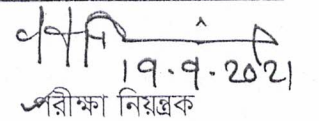 19.9.2021
পরীক্ষা নিয়ন্ত্রক